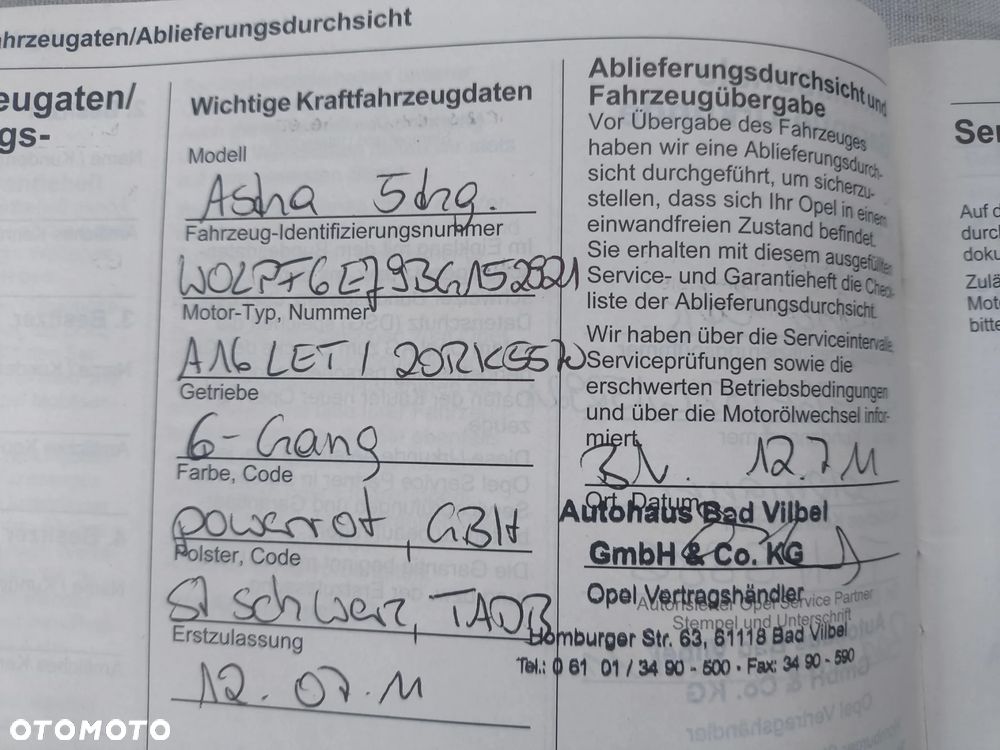 ahrzeugaten/Ablieferungsdurchsicht
eugaten/
gs-
Wichtige Kraftfahrzeugdaten
Modell
Astra 5trg.
Fahrzeug-Identifizierungsnummer
W0LPF6EJ93G152821
Motor-Typ, Nummer
A16 LET
Getriebe
6-Gang
Farbe, Code
powerrot, GBH
Polster, Code
schwarz, TADB
Erstzulassung
12.07.11
Ablieferungsdurchsicht und
Fahrzeugübergabe
Vor Übergabe des Fahrzeuges
haben wir eine Ablieferungsdurch-
sicht durchgeführt, um sicherzu-
stellen, dass sich Ihr Opel in einem
einwandfreien Zustand befindet.
Sie erhalten mit diesem ausgefüllten
Service- und Garantieheft die Check-
liste der Ablieferungsdurchsicht.
Wir haben über die Serviceintervalle,
Serviceprüfungen sowie die
erschwerten Betriebsbedingungen
und über die Motorölwechsel infor-
miert.
BV. 12.7.11
Ort, Datum
Autohaus Bad Vilbel
GmbH & Co. KG
Opel Vertragshändler
Autorisierter Opel Service Partner
Stempel und Unterschrift
Homburger Str. 63, 61118 Bad Vilbel
Tel.: 0 61 01 / 34 90 - 500 · Fax: 34 90 - 590
Ser
Auf d
durch
doku
Zulä
Mot
bitte
OTOMOTO